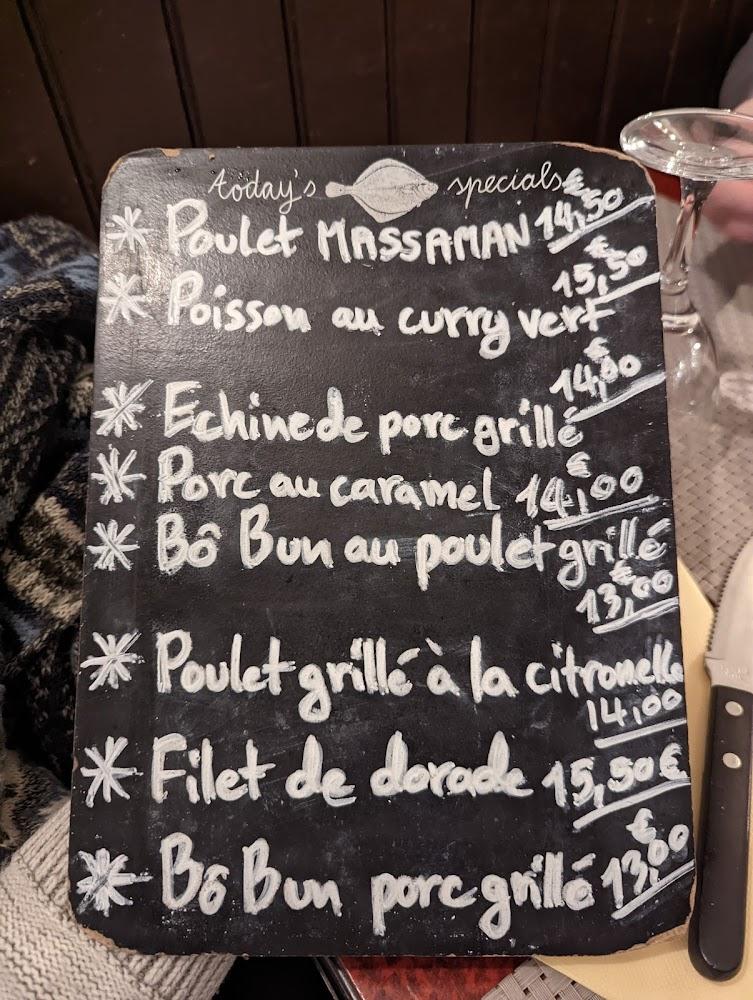 today's specials
* Poulet MASSAMAN 14,50€
15,50€
* Poisson au curry vert
14,00€
* Echine de porc grillé
* Porc au caramel 14,00€
* Bô Bun au poulet grillé
13,00€
* Poulet grillé à la citronelle
14,00
* Filet de dorade 15,50€
* Bô Bun porc grillé 13,00€